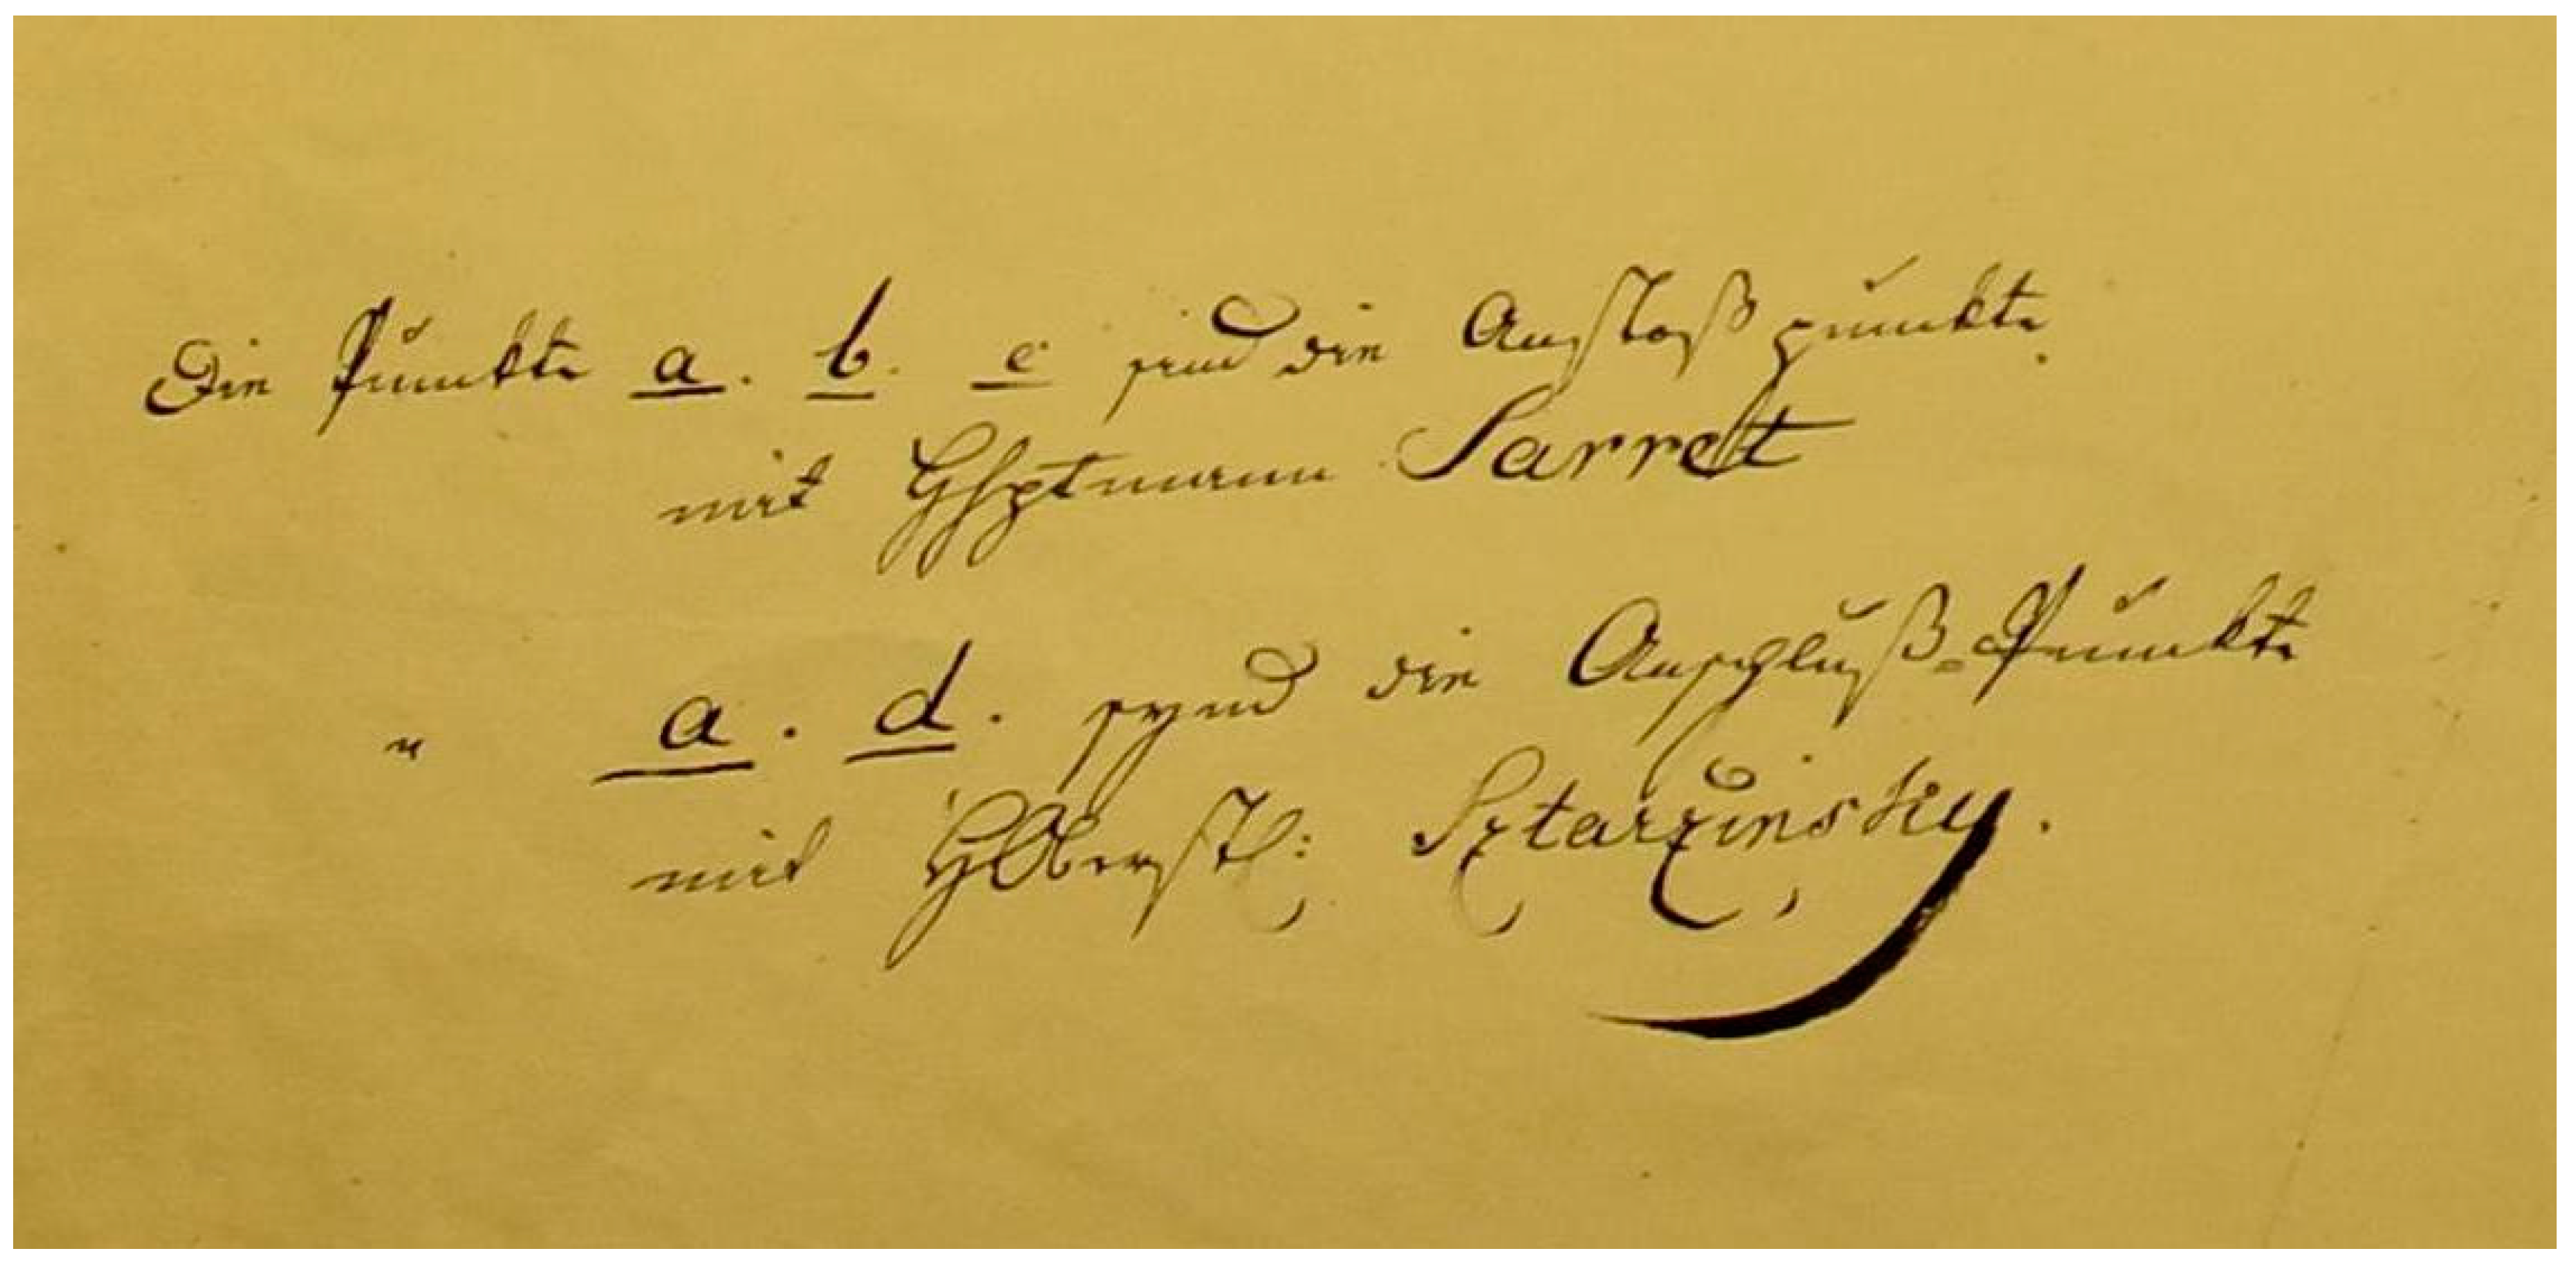 Die Punkte a. b. c sind die Anstoßpunkte
mit H Hptmann Sarret
" a. d. synd die Anschluß-Punkte
mit H Oberstl: Sztarzinsky.